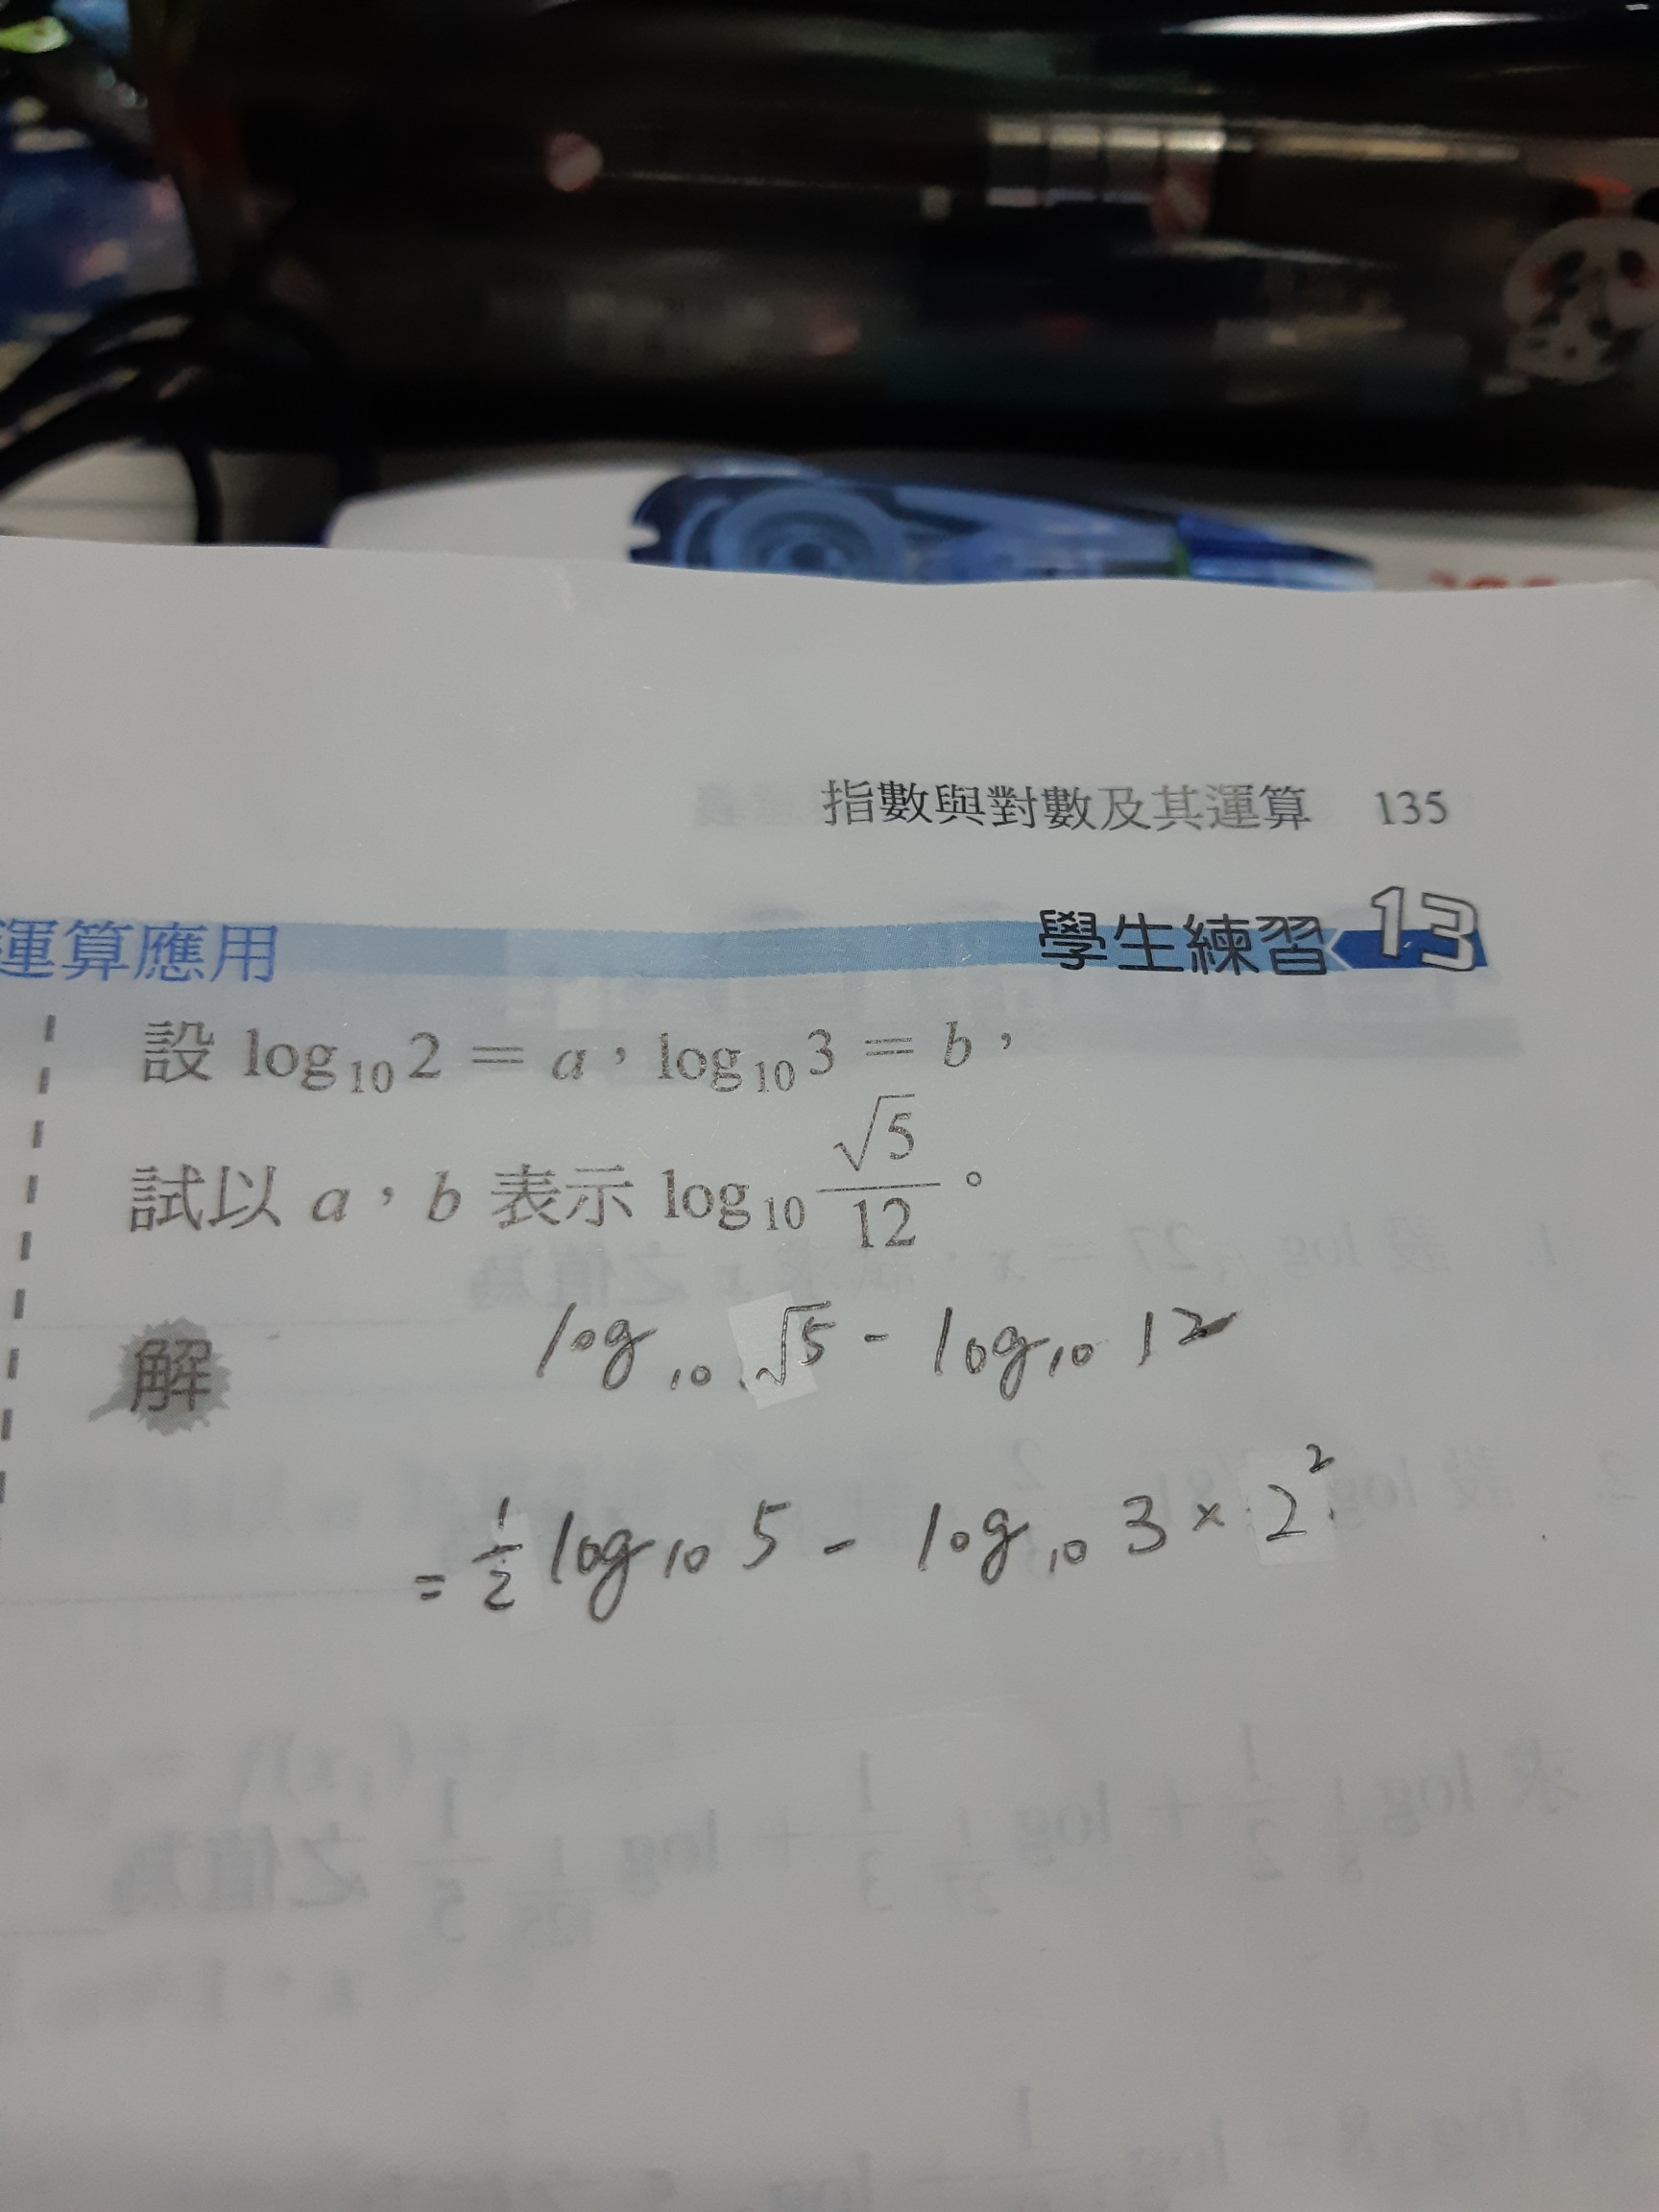 指數與對數及其運算 135
運算應用 學生練習 13
設 log₁₀2 = a，log₁₀3 = b，
試以 a，b 表示 log₁₀ √5/12。
解
log₁₀ √5 - log₁₀ 12
= 1/2 log₁₀ 5 - log₁₀ 3 × 2²